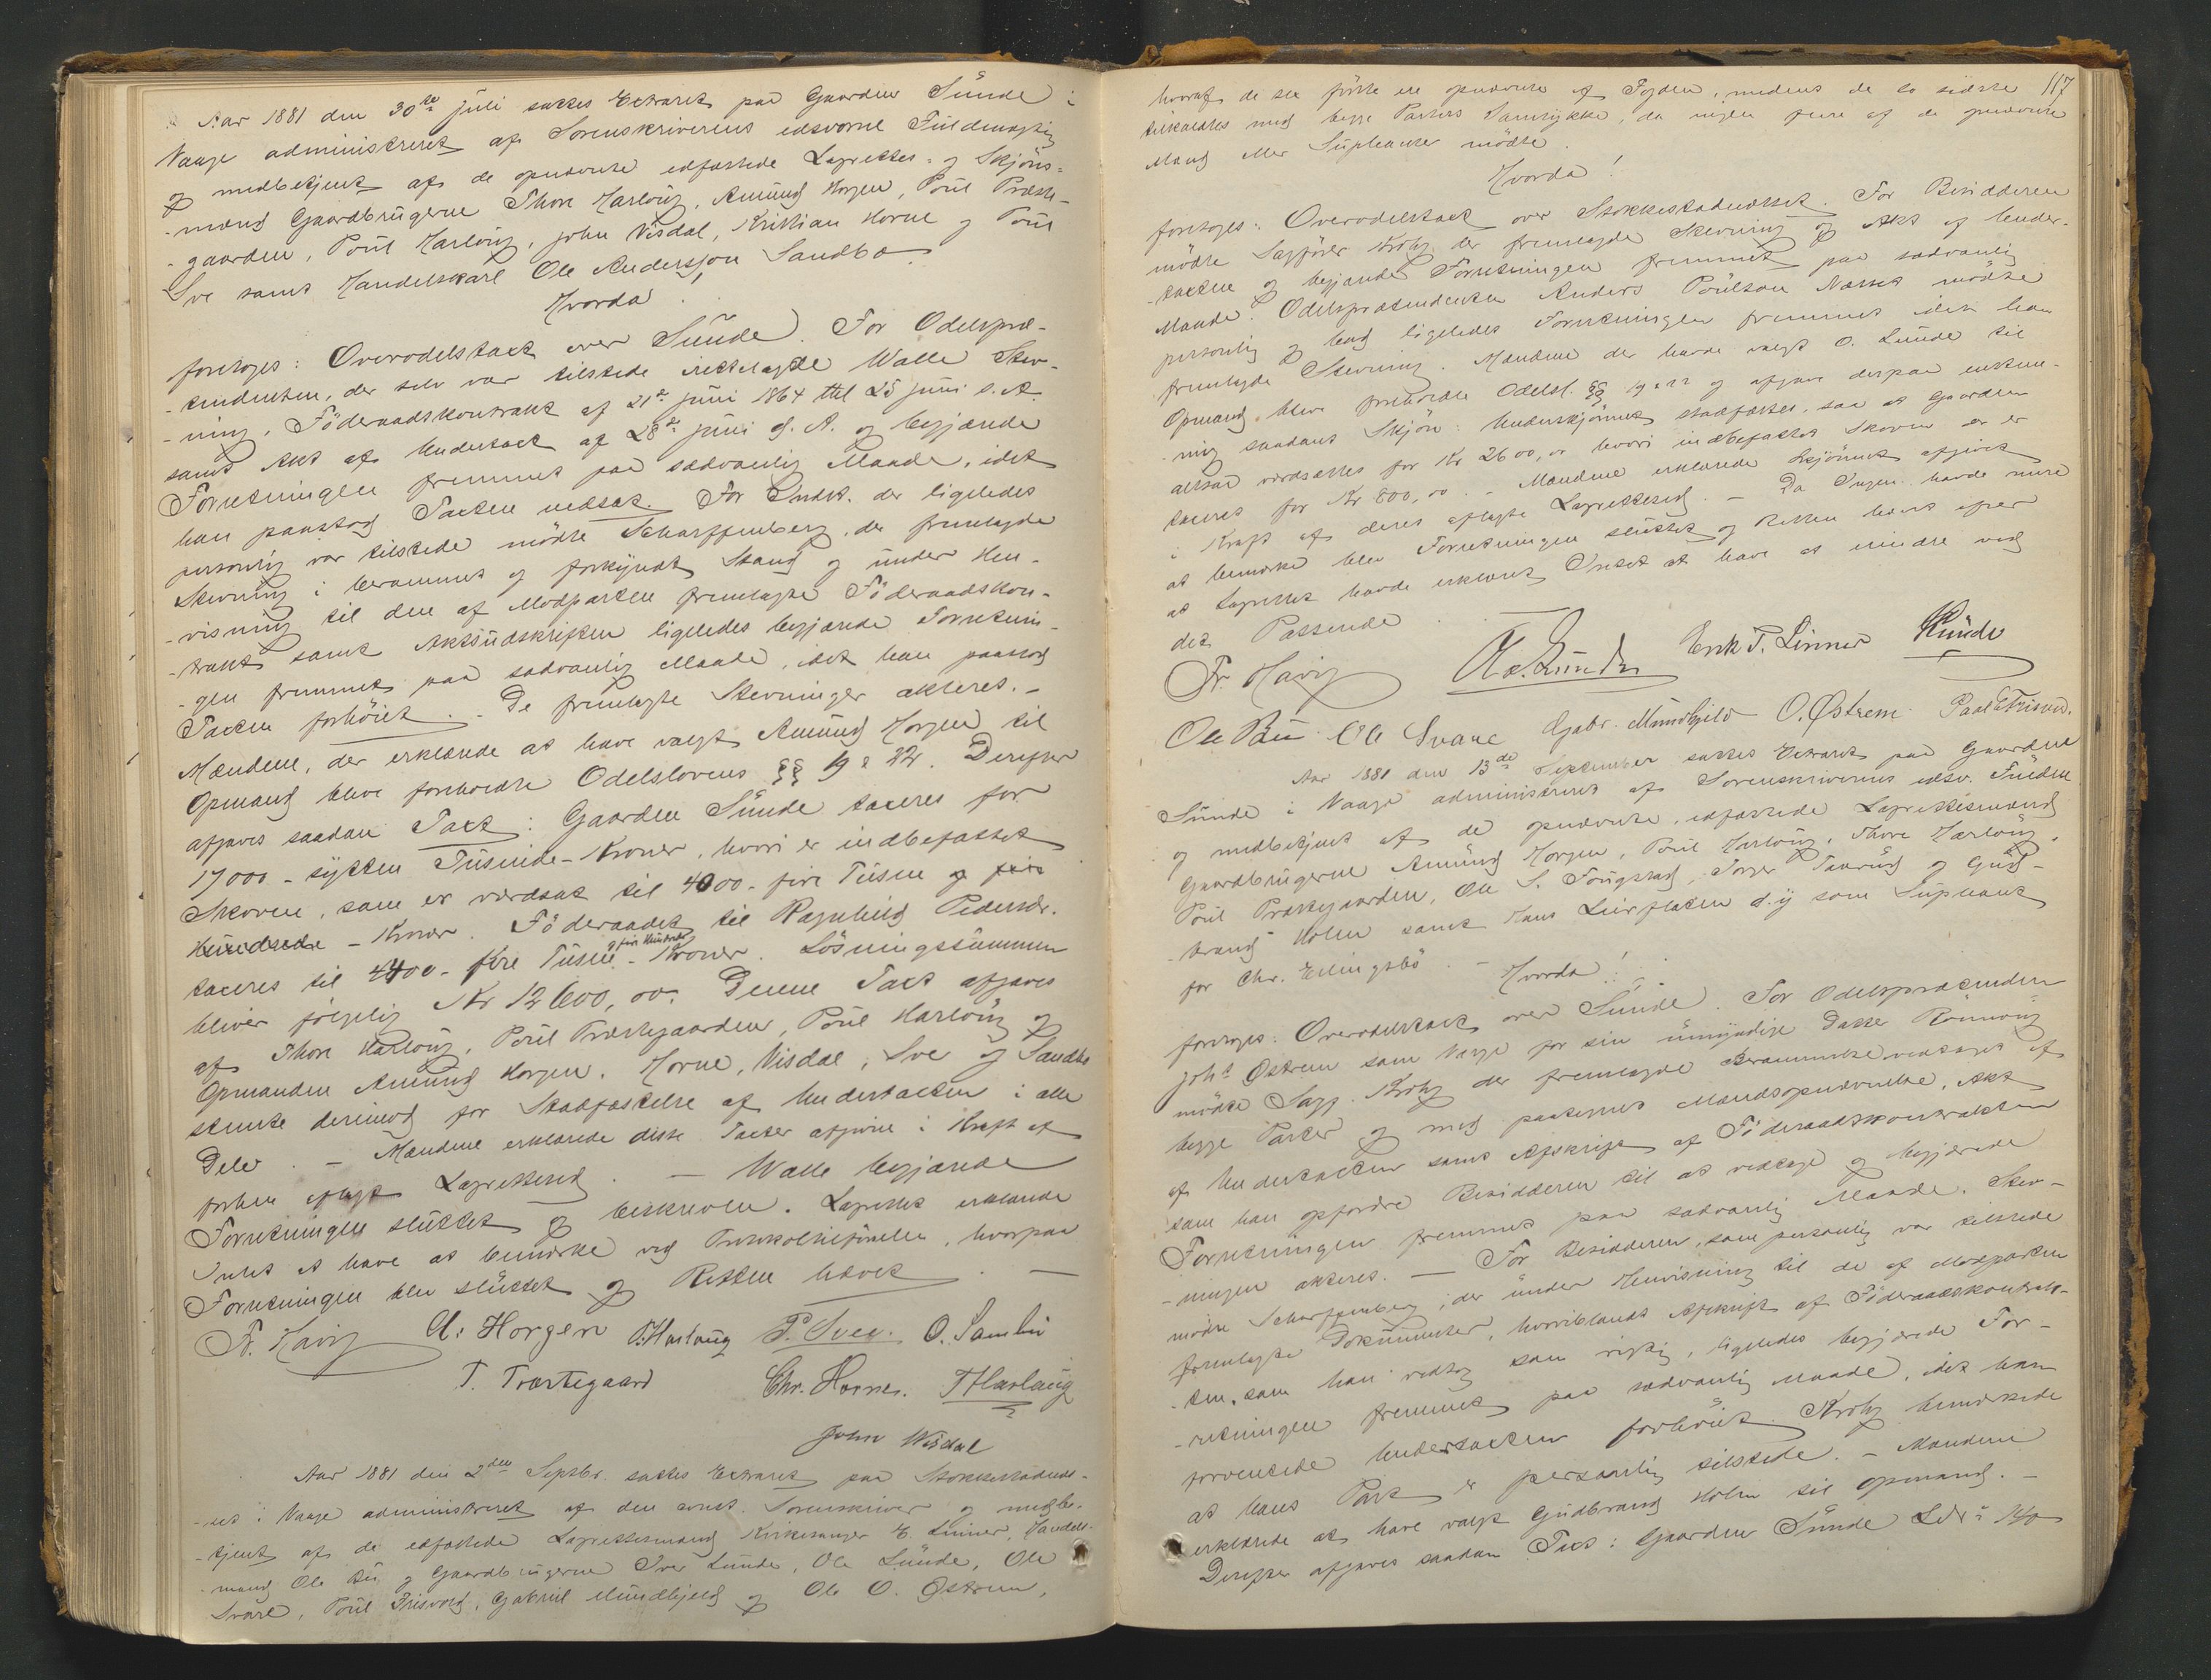 Aar 1881 den 30te juli sattes Extraret paa Gaarden Sünde i
Vaage administreret af Sorenskriverens edsvorne Fuldmægtig
og medbetjent af de opnævnte edfæstede Lagrettes- og Skjöns-
-mænd Gaardbrugerne Thore Harlaug, Amund Horgen, Poul Præste-
-gaarden, Poul Harlaug, John Visdal, Kristian Horne og Poul
Sve samt Handelskarl Ole Andersson Sandbo.
Hvorda!
foretoges: Overodelstaxt over Sünde. For Odelspræ-
-tendenten, der selv var tilstede irettelagde Walle Stev-
-ning, Föderaadskontrakt af 21de juni 1864 thl 25 juni s. A.
samt Akt af Undertaxt af 28de juni d. A. og begjærede
Forretningen fremmet paa sædvanlig Maade, idet
han paastod Taxten nedsat. For Indst. der ligeledes
personlig var tilstede mödte Scharffenberg, der fremlagde
Stevning i berammet og forkyndt Stand og under Hen-
-visning til den af Modparten fremlagte Föderaadskon-
-trakt samt Aktsudskriften ligeledes begjærede Forretnin-
-gen fremmet paa sædvanlig Maade, idet han paastod
Taxten forhöiet. - De fremlagte Stevninger akteres. -
Mændene, der erklærede at have valgt Amund Horgen til
Opmand blev foreholdte Odelslovens §§ 19 & 22. Derefter
afgaves saadan Taxt: Gaarden Sünde taxeres for
17000 - sytten Tusinde - Kroner, hvori er indbefattet
Skoven, som er værdsat til 4000 - fire Tusen og fire
Hundrede - Kroner. Föderaadet til Ragnhild Pedersdr.
og fire Hundrede
taxeres til 4400 - fire Tusen - Kroner. Lösningssummen
bliver fölgelig Kr 12600,00. Denne Taxt afgaves
af Thore Harlaug, Poul Præstegaarden, Poul Harlaug og
Opmanden Amund Horgen. Horne, Visdal, Sve og Sandbo
stemte derimod for Stadfæstelse af Undertaxten i alle
Dele. - Mændene erklærede disse Taxter afgivne i Kraft af
forhen aflagt Lagrettesed. - Walle begjærede
Forretningen sluttet og beskreven. Lagrettet erklærede
Intet at have at bemærke ved Protokoltilförselen, hvorpaa
Forretningen blev sluttet og Retten hævet. -
Fr. Havig A. Horgen P. Harlaug P. Sve O. Sandbu
P. Præstegaard Chr. Horne. T Harlaug
John Wisdal
Aar 1881 den 2den Septbr. sattes Extraret paa Stokkestadnæs-
-set i Vaage administreret af den const. Sorenskriver og medbe-
-tjent af de edfæstede Lagrettesmænd Kirkesanger E. Linner, Handels-
-mand Ole Bu og Gaardbrugerne Iver Sunde, Ole Sunde, Ole
Svare, Poul Frisvold, Gabriel Mundhjeld og Ole O. Östrem,
117
hvoraf de sex förste ere opnævnte af Fogden, medens de to sidste
tilkaldtes med begge Parters Samtykke, da ingen flere af de opnævnte
Mænd eller Supleanter mödte.
Hvorda!
foretoges: Overodelstaxt over Stokkestadnæsset. For Besidderen
mödte Sagförer Krohg der fremlagde Stevning og Akt af Under-
-taxten og begjærede Forretningen fremmet paa sædvanlig
Maade. Odelsprætendenten Anders Poulson Næsset mödte
personlig og bad ligeledes Forretningen fremmet idet han
fremlagde Stevning. Mændene der havde valgt O. Sunde til
Opmand blev foreholdte Odelsl. §§ 19 & 22 og afgav derpaa enstem-
-mig saadant Skjön: Underskjönnet stadfæstes, saa at Gaarden
altsaa værdsættes for Kr 2600,00 hvori indbefattet Skoven er er
taxeret for Kr 800,00. - Mændene erklærede Skjönnet afgivet
i Kraft af deres aflagte Lagrettesed. - Da Ingen havde mere
at bemærke blev Forretningen sluttet og Retten hævet efter
at Lagrettet havde erklæret Intet at have at erindre ved
det Passerede. -
Fr. Havig O. Sunde Erik T. Linner Sunde
Ole Bu Ole Svare Gabr. Mundhjeld O. Østrem Paal Frisvd.
Aar 1881 den 13de September sattes Extraret paa Gaarden
Sunde i Vaage administreret af Sorenskriverens edsv. Fuldm
og medbetjent af de opnævnte, edfæstede Lagrettesmænd
Gaardbrugerne Amund Horgen, Poul Harlaug, Thore Harlaug,
Poul Præstegaarden, Ole S. Tougstad, Torger Taarud og Gud-
-brand Holen samt Hans Leirflaten d. y som Supleant
for Chr. Erlingsbö. - Hvorda!
foretoges: Overodelstaxt over Sünde. For Odelsprætendenten
Johs Östrem som Værge for sin umyndige Datter Rönnoug
mödte Sagf. Krohg der fremlagde Berammelse vedtaget af
begge Parter og med paategnet Mandsopnævnelse, Akt
af Undertaxten samt Afskrift af Föderaadskontrakten
som han opfordre Besidderen til at vedtage og begjærede
Forretningen fremmet paa sædvanlig Maade. Stev-
-ningen akteres. - For Besidderen, som personlig var tilstede
mödte Scharffenberg, der under Henvisning til de af Modparten
fremlagte Dokumenter, hvoriblandt Afskrift af Föderaadskontrak-
-ten, som han vedtog som rigtig, ligeledes begjærede For-
-retningen fremmet paa sædvanlig Maade, idet han
forventede Undertaxten forhöiet. Krohg bemærkede
at hans Part er personlig tilstede. - Mændene
erklærede at have valgt Gudbrand Holen til Opmand. -
Derefter afgaves saadan Taxt: Gaarden Sünde LNr: 140